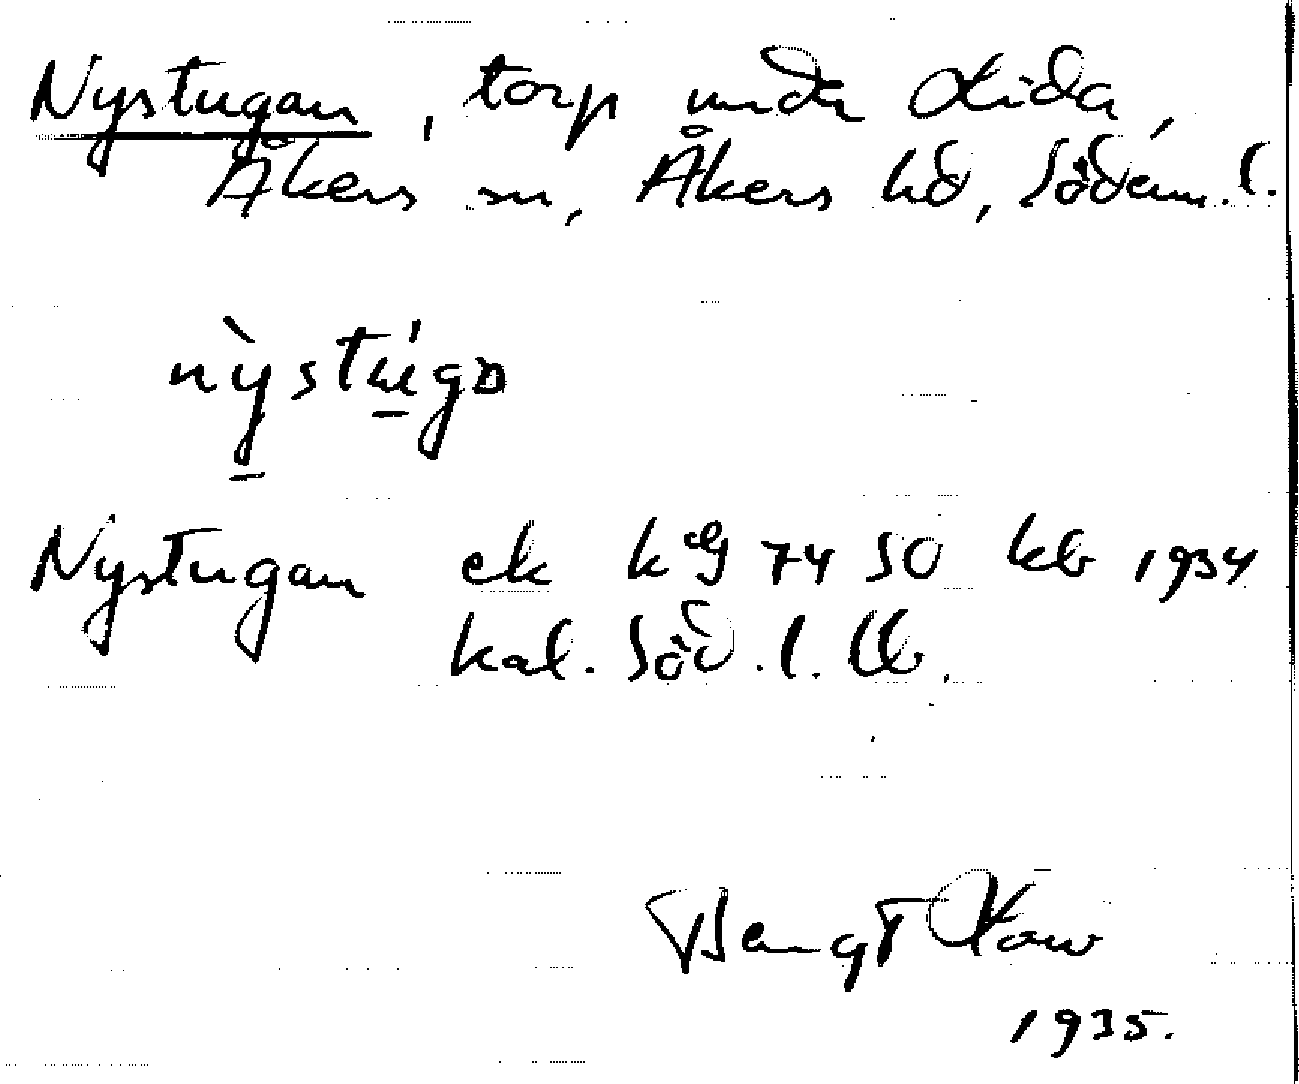 Nystugan, torp under Lida,
Åkers sn, Åkers hd, Söderm. l.
nỳstúgɒ
Nystugan ek keg 74 SO kb 1934
kal. Söd. l. lb.
Bengt
1935.